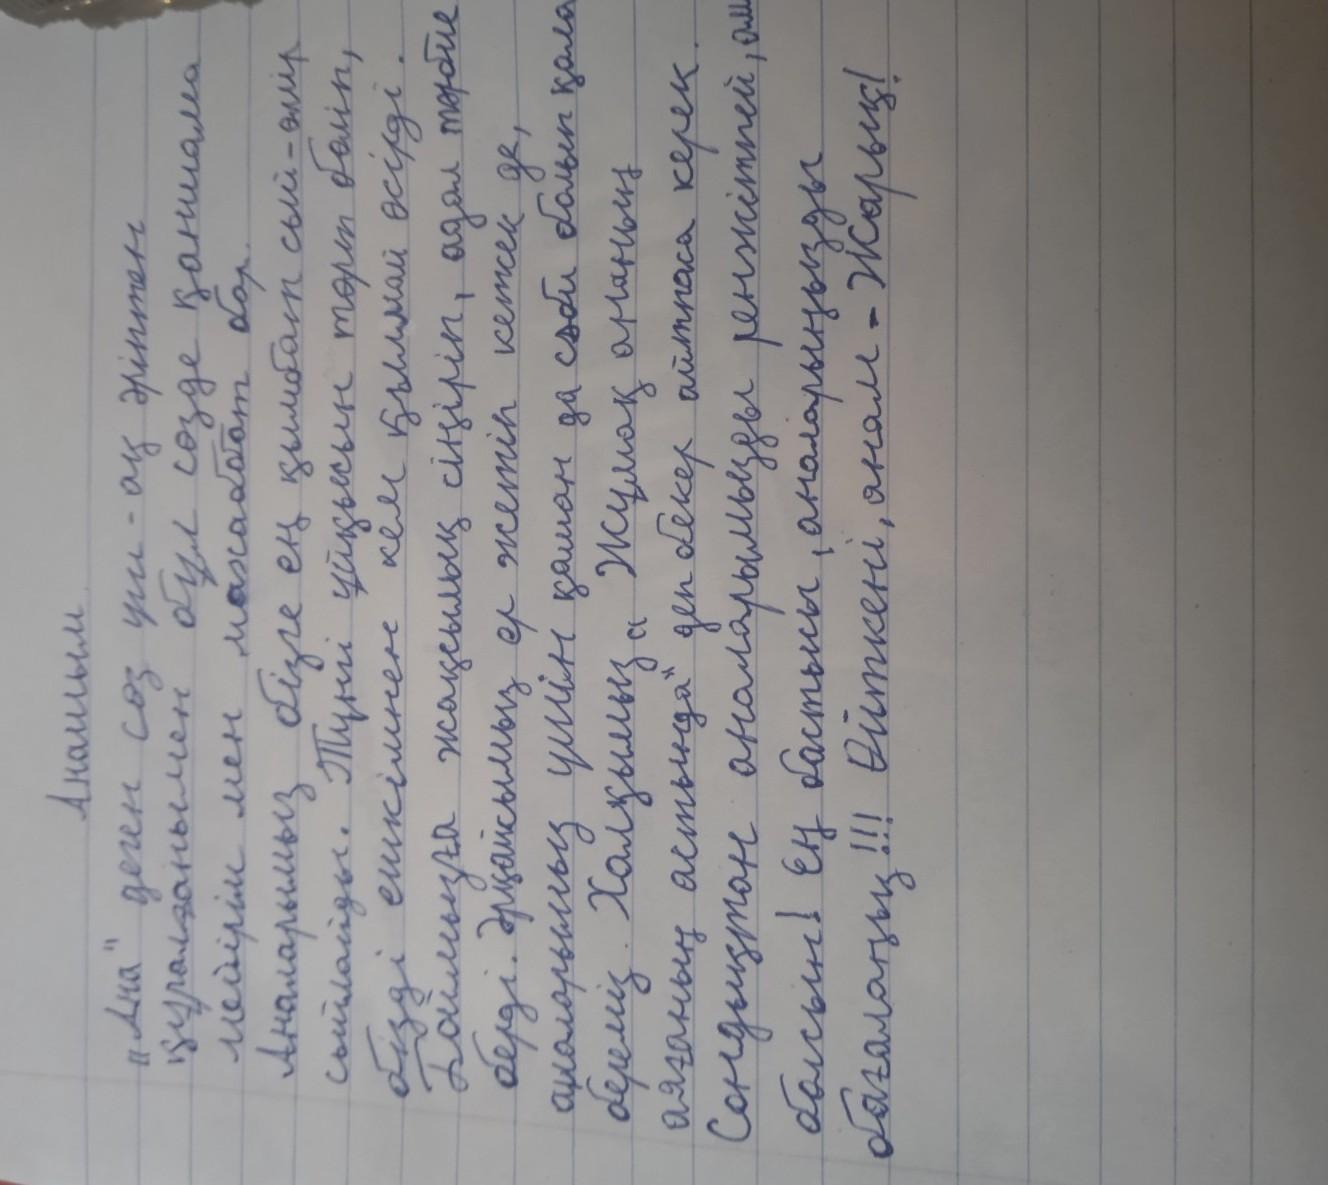 Анашым
"Ана" деген сөз үш-ақ әріптен
құралғанымен бұл сөзде қаншама
мейірім мен махаббат бар.
Аналарымыз бізге ең қымбат сый-өмір
сыйлайды. Түнгі ұйқысын төрт бөліп,
бізді ешкімнен кем қылмай өсірді.
Бойымызға жақсылық сіңіріп, адал тәрбие
берді. Әрқайсымыз ер жетіп кетсек де,
аналарымыз үшін қашан да сәби болып қала
береміз. Халқымыз "Жұмақ ананың
аяғының астында" деп бекер айтпаса керек.
Сондықтан аналарымызды ренжітпей,
болсын! Ең бастысы, аналарыңызды
бағалаңыз!!! Өйткені, анам - Жарық!